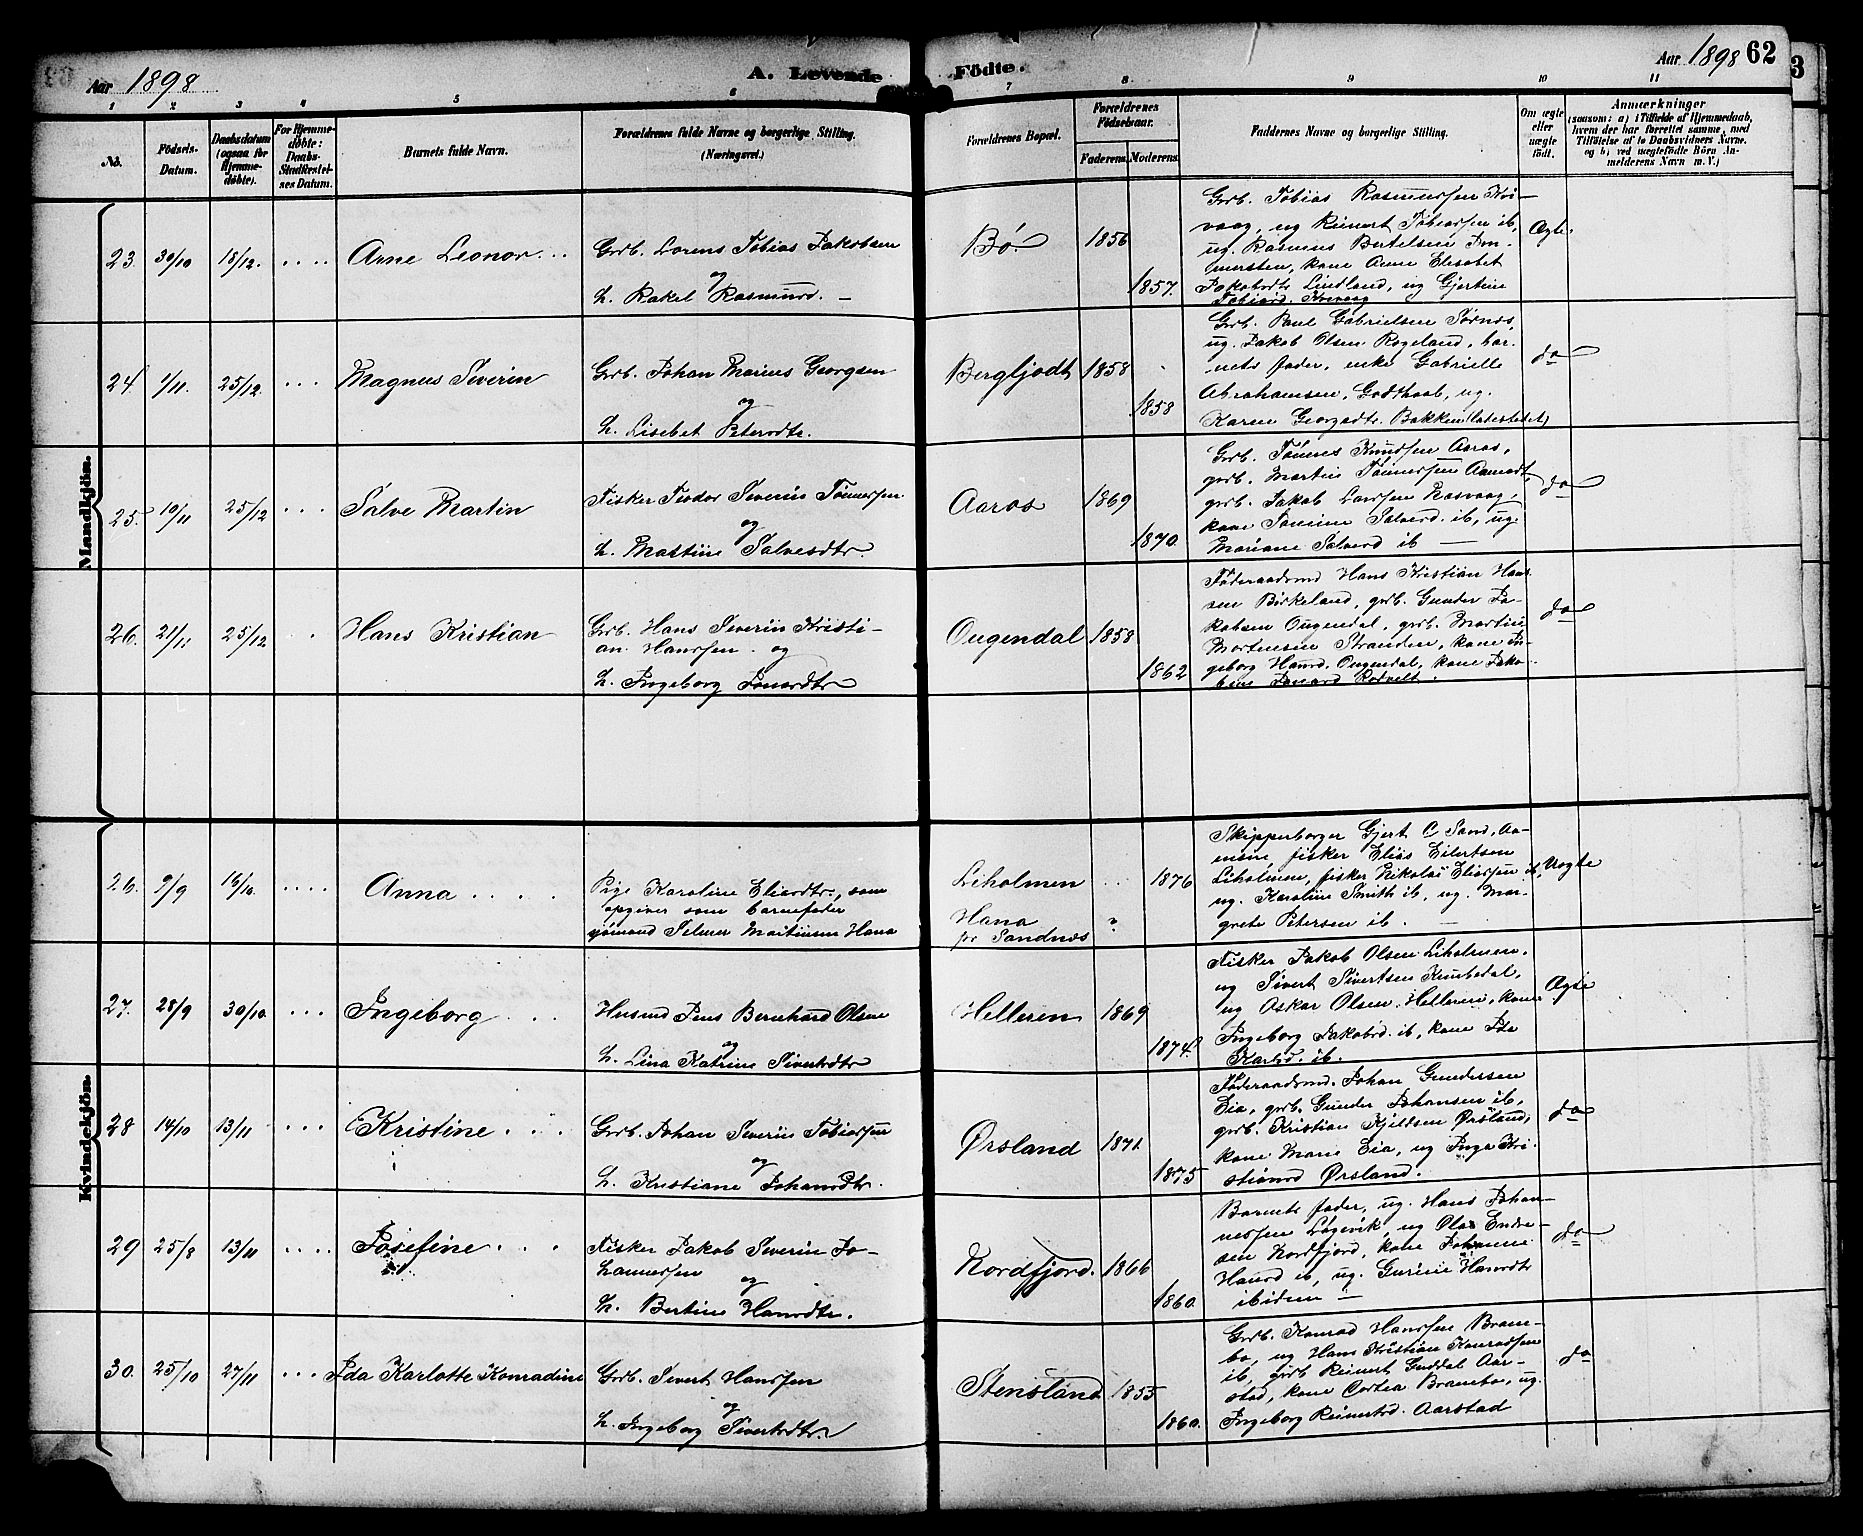 Aar 1898 A. Levende Födte. Aar 1898 62
1 2 3 4 5 6 7 8 9 10 11
No.
Födsels-Datum.
Daabsdatum (ogsaa for Hjemmedøbte).
For Hjemmedøbte: Daabs-Stadfæstelses Datum.
Barnets fulde Navn.
Forældrenes fulde Navne og borgerlige Stilling.
(Næringsvei.)
Forældrenes Bopæl.
Forældrenes Födselsaar.
Faderens. Moderens.
Faddernes Navne og borgerlige Stilling.
Om ægte eller uægte födt.
Anmærkninger
(saasom: a) i Tilfælde af Hjemmedaab,
hvem der har forrettet samme, med
Tilföielse af to Daabsvidners Navne.
og b) ved uægtefödte Börn An-
melderens Navn m. V.)
Mandkjön.
23. 30/10 18/12. Arne Leonor
Grb. Lorens Tobias Jakobsen
og
h. Rakel Rasmusd.
Bö. 1856 1857.
Grb. Tobias Rasmussen
vaag, ug Reinert Tobiassen ib,
ug. Rasmus Bertelsen
kone Anne Elisabet
Jakobsdtr Lindland, ug Gjertine
Tobiasd.
Ægte.
24. 1/11. 25/12. Magnus Severin
Grb. Johan Marius Georgsen
og
h. Lisebet Petersdtr.
Bergljodt 1858 1858
Grb. Paul Gabrielsen Sørnes,
ug. Jakob Olsen Rogeland, bar-
nets fader, enke Gabrielle
Abrahamsen, Godthaab, ug.
Karen Georgsdtr. Bakken
do
25. 10/11 25/12 Salve Martin
Fisker Teodor Severin Tönnessen
og
h. Martine Salvesdtr.
Aaros 1869 1870.
Grb. Tönnes Knudsen Aaros,
grb. Martin Tönnessen
grb. Jakob Larssen Rasvaag,
kone Tomine Salvesd. ib, ug.
Mariane Salvesd ib
do
26. 21/11 25/12 Hans Kristian
Grb. Hans Severin Kristi-
an Hanssen og
h. Ingeborg
Ougendal 1858 1862
Föderaadsmd Hans Kristian Hans
sen Birkeland, grb. Gunder Ja-
kobsen Ougendal, grb. Martin
Mortensen Stranden, kone In-
geborg Hansd. Ougendal, kone Jako-
bine
do
Kvindekjön.
26. 9/9 16/10. Anna
Pige Karoline Eliasdtr, som
opgiver som barnefader
sjömand Selmer Martinsen Hana
Liholmen 1876
Hana ?
pr Sandnæs
Skipperborger Gjert C Sand,
fisker Elias Eilertsen
Liholmen, fisker Nikolai Eliassen ib,
ug. Karoline Smith ib, ug. Mar-
grete Petersen ib.
Uægte
27. 28/9 30/10. Ingeborg
Husmd Jens Bernhard Olsen
og
h. Lina Katrine Sivertsdtr
Helleren 1869 1874.
Fisker Jakob Olsen Liholmen,
ug Sivert Sivertsen Knubedal,
ug Oskar Olsen Helleren, kone
Ingeborg Jakobsd. ib, kone Ida
Karlsd. ib.
Ægte
28 14/10 13/11 Kristine
Grb. Johan Severin Tobiassen
og
h. Kristiane Johansdtr.
Ørsland 1871. 1875
Föderaadsmd. Johan Gundersen
Eia, grb. Gunder Johansen ib,
grb. Kristian Kjeldsen Ørsland,
kone Marie Eia, ug Inga Kri-
stiansd Ørsland.
do
29 25/8 13/11 Josefine
Fisker Jakob Severin Jo-
hannessen
og
h. Bertine Hansdtr.
Nordfjord. 1866 1860.
Barnets fader, ug. Hans Johan-
nessen Løgevik, ug Olai Endre-
sen Nordfjord, kone Johanne
Hansd ib, ug. Gurine Hansdtr
ibidem
do
30. 25/10 27/11 Ida Karlotte Konradine
Grb. Sivert Hanssen
og
h. Ingeborg Sivertsdtr.
Stensland 1855 1860.
Grb. Konrad Hanssen Brane-
bo, ug Hans Kristian Konradsen
ib, grb Reinert Guddal Aar-
stad, kone Cortea Branebo, ug.
Ingeborg Reinertsd. Aarstad
do